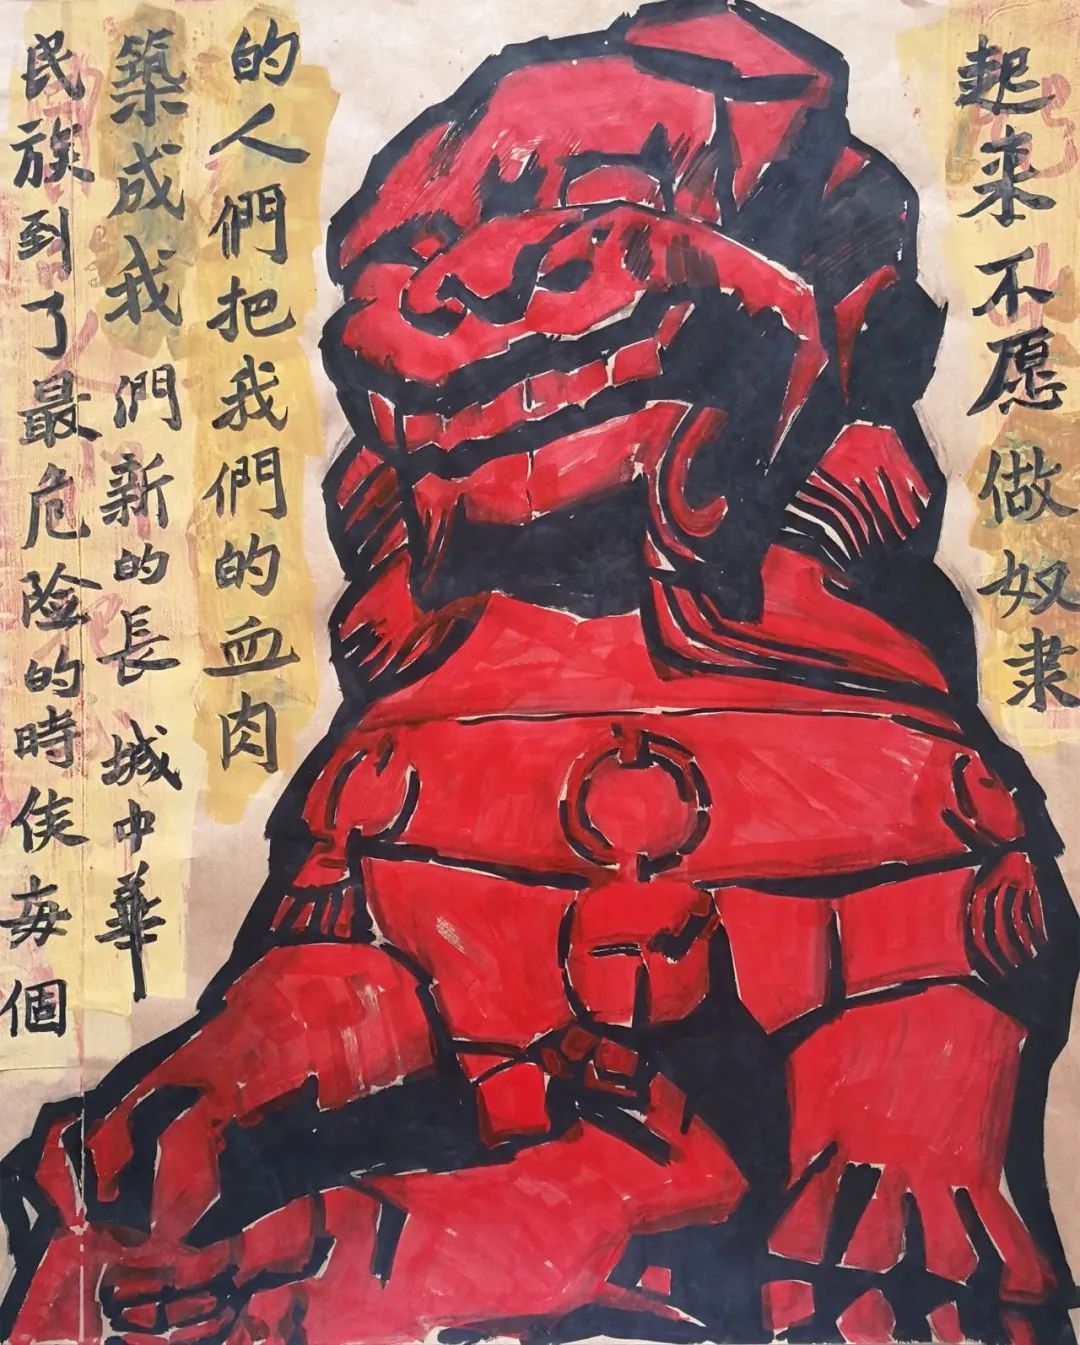 起来不愿做奴隶
的人們把我們的血肉
築成我們新的長城中華
民族到了最危险的時侯每個